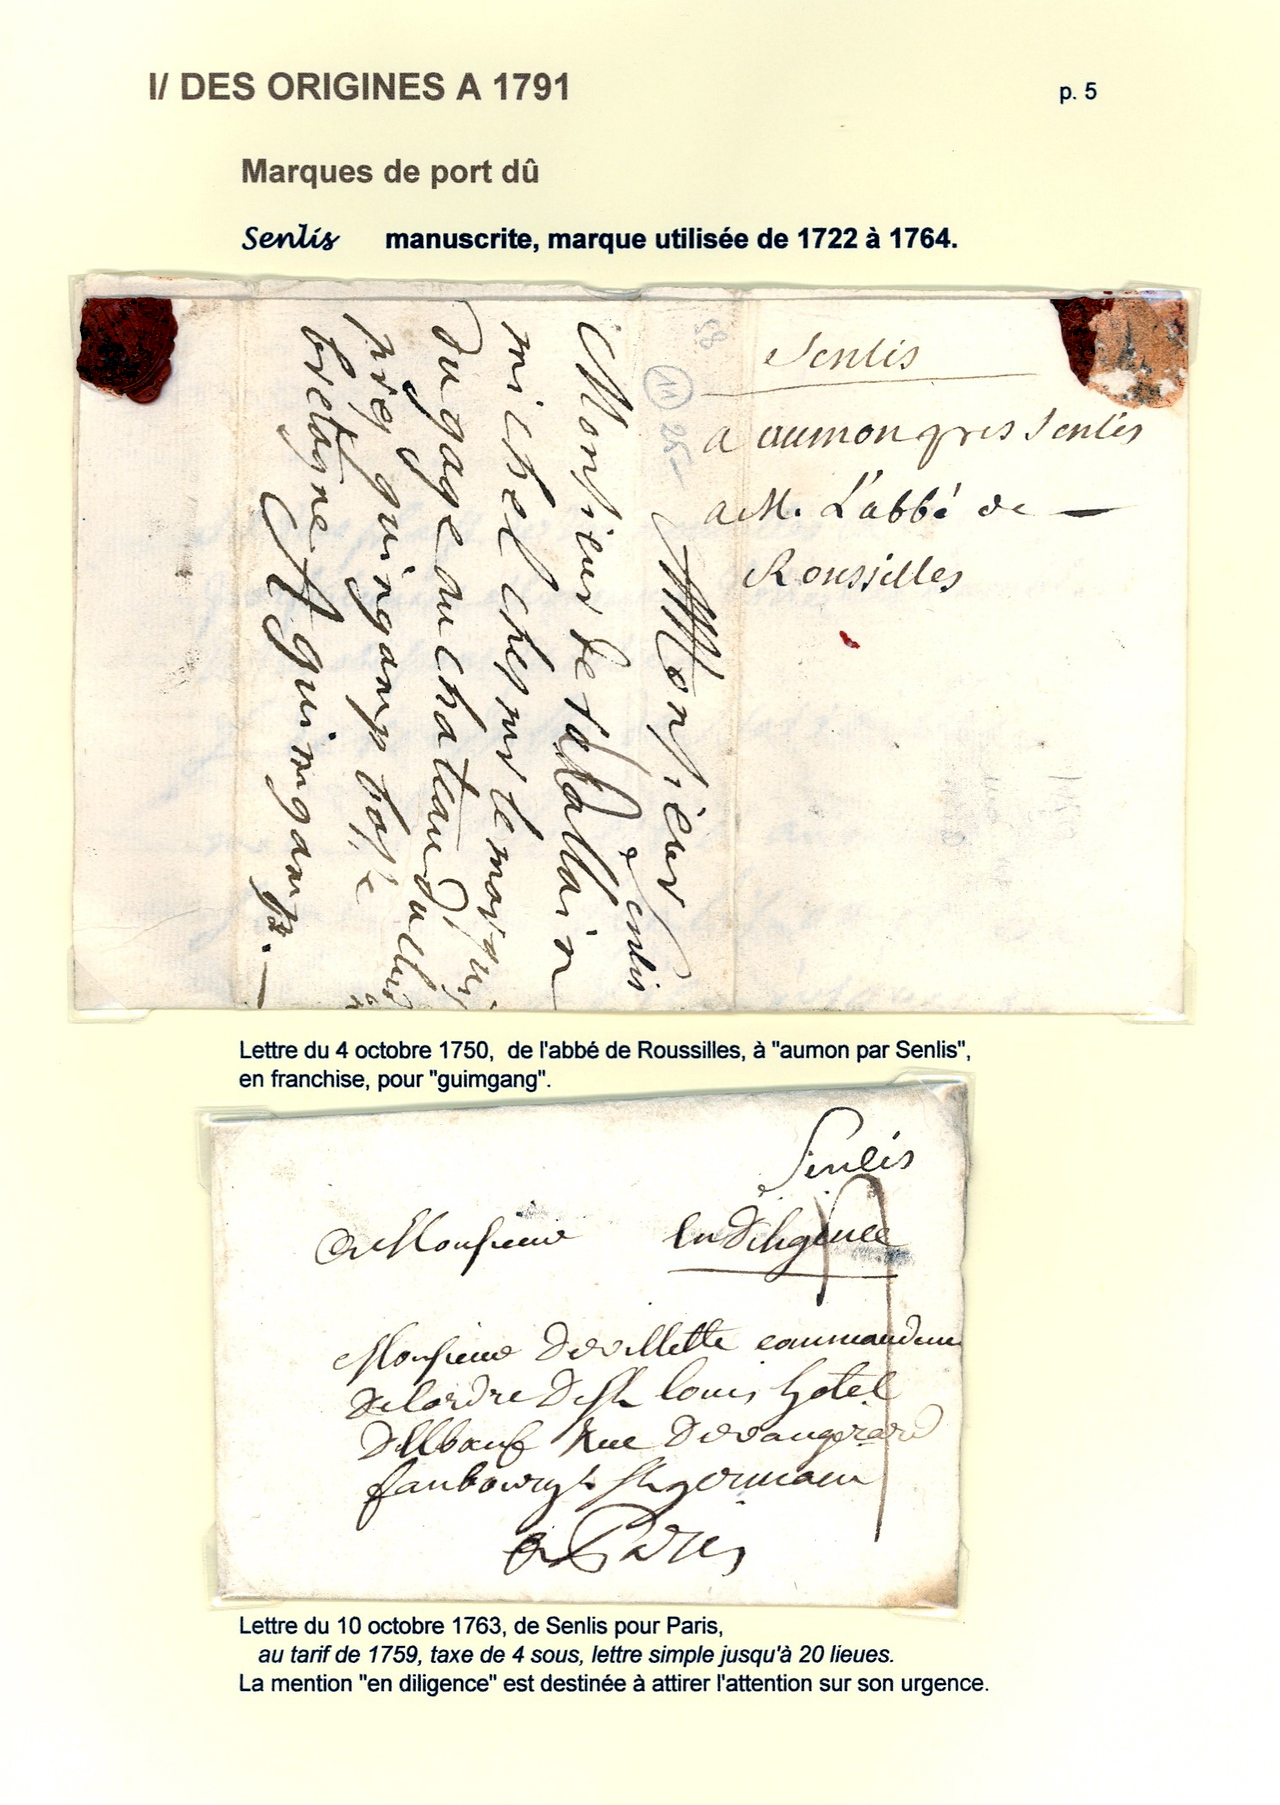 I/ DES ORIGINES A 1791
p. 5
Marques de port dû
Senlis manuscrite, marque utilisée de 1722 à 1764.
Senlis
a aumon pres Senlis
a M. L'abbé de —
Roussilles
58
11 25-
A Monsieur
Senlis
Monsieur de
michel sur le
du chateau
pres guingamp basse
bretagne
A guimgamp. —
Lettre du 4 octobre 1750, de l'abbé de Roussilles, à "aumon par Senlis",
en franchise, pour "guimgang".
Senlis
A Monsieur En Diligence
Monsieur Devillette commandeur
De lordre De St louis hotel
Delbœuf Rue De vaugerard
faubourg St germain
a Paris
Lettre du 10 octobre 1763, de Senlis pour Paris,
au tarif de 1759, taxe de 4 sous, lettre simple jusqu'à 20 lieues.
La mention "en diligence" est destinée à attirer l'attention sur son urgence.